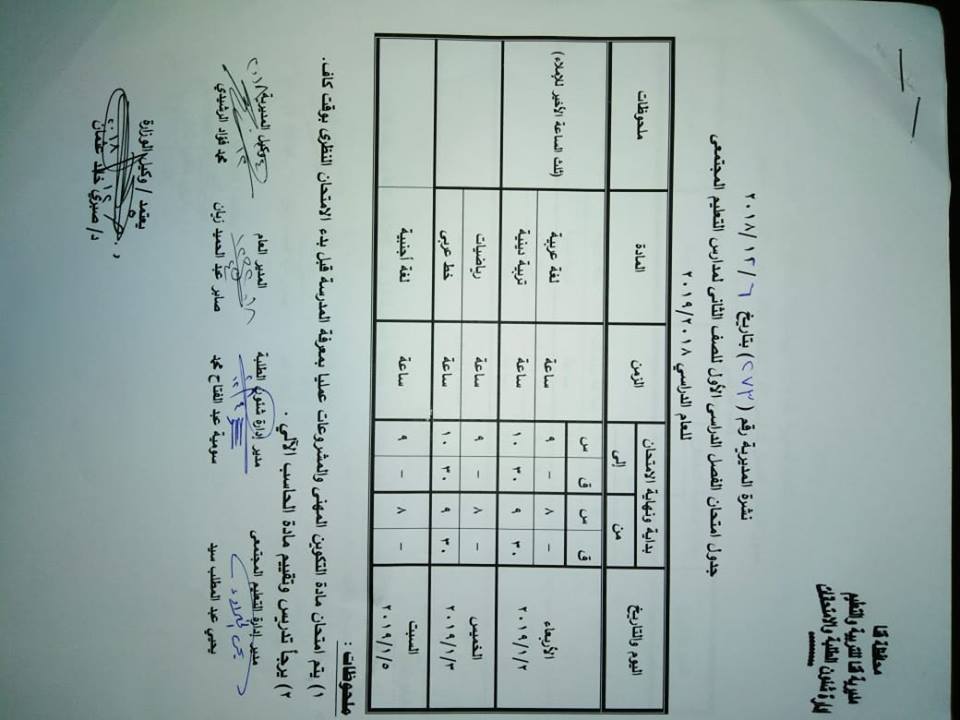 محافظة قنا
مديرية قنا للتربية والتعليم
إدارة شئون الطلبة والامتحانات
نشرة المديرية رقم (٢٧٣) بتاريخ ٦ /١٢/ ٢٠١٨
جدول امتحان الفصل الدراسى الأول للصف الثانى لمدارس التعليم المجتمعى
للعام الدراسي ٢٠١٩/٢٠١٨
اليوم والتاريخ بداية ونهاية الامتحان الزمن المادة ملحوظات
من إلى
ق س ق س
الأربعاء ٢٠١٩/١/٢ – ٨ – ٩ ساعة لغة عربية (ثلث الساعة الأخير للإملاء)
٣٠ ٩ ٣٠ ١٠ ساعة تربية دينية
الخميس ٢٠١٩/١/٣ – ٨ – ٩ ساعة رياضيات
٣٠ ٩ ٣٠ ١٠ ساعة خط عربى
السبت ٢٠١٩/١/٥ – ٨ – ٩ ساعة لغة أجنبية
ملحوظات :
١) يتم امتحان مادة التكوين المهنى والمشروعات عمليا بمعرفة المدرسة قبل بدء الامتحان النظرى بوقت كاف.
٢) يرجأ تدريس وتقييم مادة الحاسب الآلي .
مدير إدارة التعليم المجتمعى مدير إدارة شئون الطلبة المدير العام وكيل المديرية
يحيي عبد المطلب سيد سومية عبد الفتاح محمد صابر عبد الحميد زيان محمد فؤاد الرشيدي
يعتمد / وكيل الوزارة
د/ صبري خالد عثمان